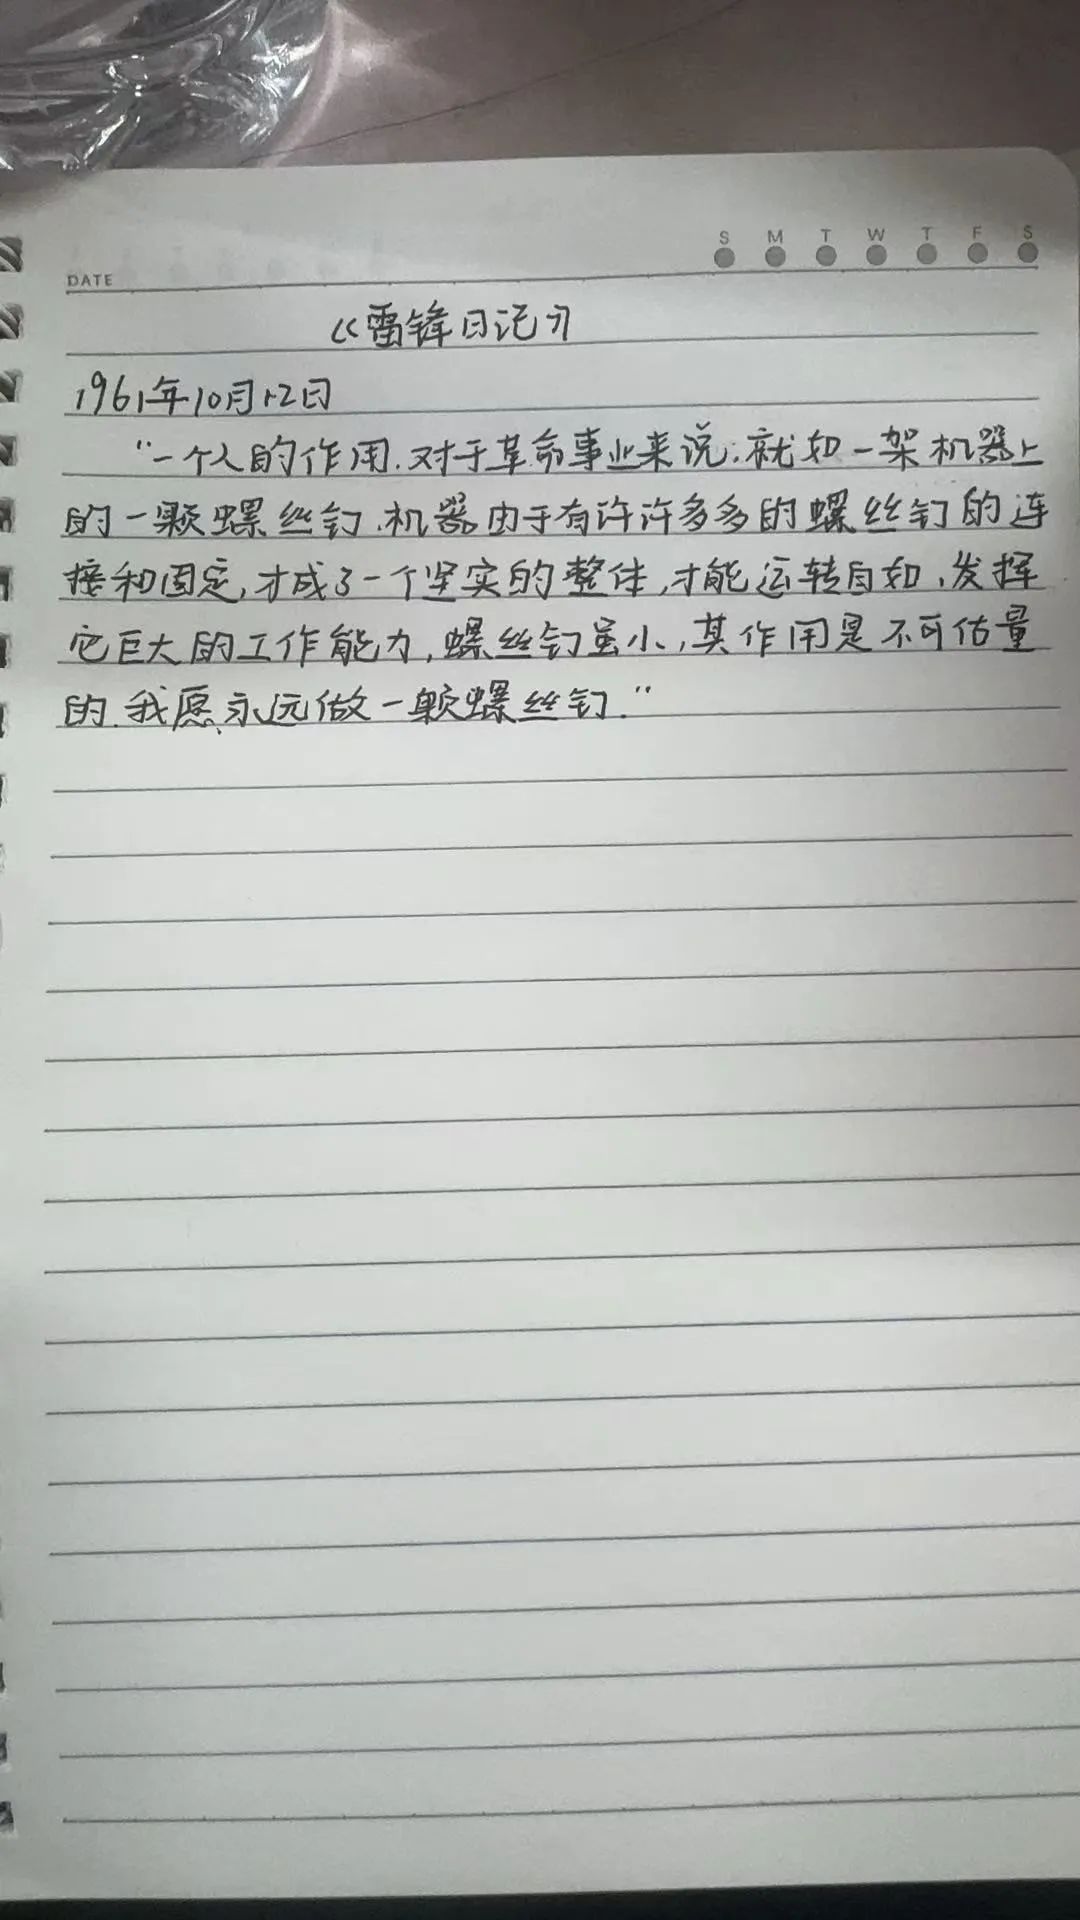 S M T W T F S
DATE
《雷锋日记》
1961年10月12日
"一个人的作用.对于革命事业来说.就如一架机器上
的一颗螺丝钉.机器由于有许许多多的螺丝钉的连
接和固定,才成了一个坚实的整体,才能运转自如,发挥
它巨大的工作能力,螺丝钉虽小,其作用是不可估量
的.我愿永远做一颗螺丝钉."